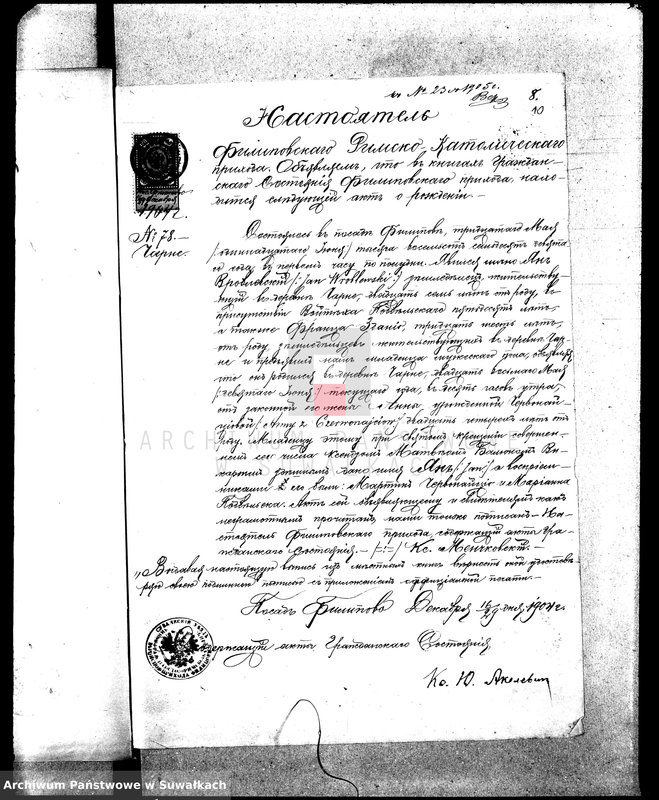 къ № 23 1905 г.
8.
10
Настоятель
Филиповскаго Римско-Католическаго
прихода. Объявляемъ, что въ книгахъ Граждан-
скаго Состоянія Филиповскаго прихода, нахо-
дится слѣдующій актъ о рожденіи:
1904 г.
№ 78.
Чарне.
Состоялось въ посадѣ Филиповѣ, тридцатаго Мая
/одиннадцатаго Іюня/ тысяча восемьсотъ семьдесятъ девята
го года, въ первомъ часу по полудни. Явился лично Янъ
Вробловскій /:Jan Wroblewski:/ земледѣлецъ жительству-
ющій въ деревнѣ Чарне, двадцать семь лѣтъ отъ роду, въ
присутствіи Войтѣха пятьдесятъ лѣтъ,
а также Франца тридцать шесть лѣтъ,
отъ роду, земледѣльцевъ жительствующихъ въ деревнѣ Чар-
не и предъявилъ намъ младенца мужескаго пола, объявляя
что онъ родился въ деревнѣ Чарне, двадцать восьмаго Мая
/:девятаго Іюня:/ текущаго года, въ десять часовъ утра,
отъ законной его жены Анны урожденной Червонай-
/Anny z Czerwonajciów/ двадцать четырехъ лѣтъ отъ
роду. Младенцу этому при святомъ крещеніи совершен-
номъ сего числа ксендзомъ Матвѣемъ Ви-
каріемъ дано имя Янъ /Jan/ а воспріем-
никами его были: Мартинъ и Маріанна
Актъ сей объявляющему и свидѣтелямъ какъ
неграмотнымъ прочитанъ, нами только подписанъ. На-
стоятель Филиповскаго прихода, содержащій акты Гра-
жданскаго Состоянія. /-:-/ Кс.
Выдавая настоящую выпись изъ книгъ вѣрность оной удостовѣ-
ряю своею подписью съ приложеніемъ оффиціальной печати.
Посадъ Филипово Декабря дня 1904 г.
Содержащій акты Гражданскаго Состоянія
Кс. Ю. Акелевич
Archiwum Państwowe w Suwałkach